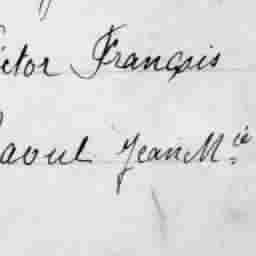 ictor François
aoul Jean Mie